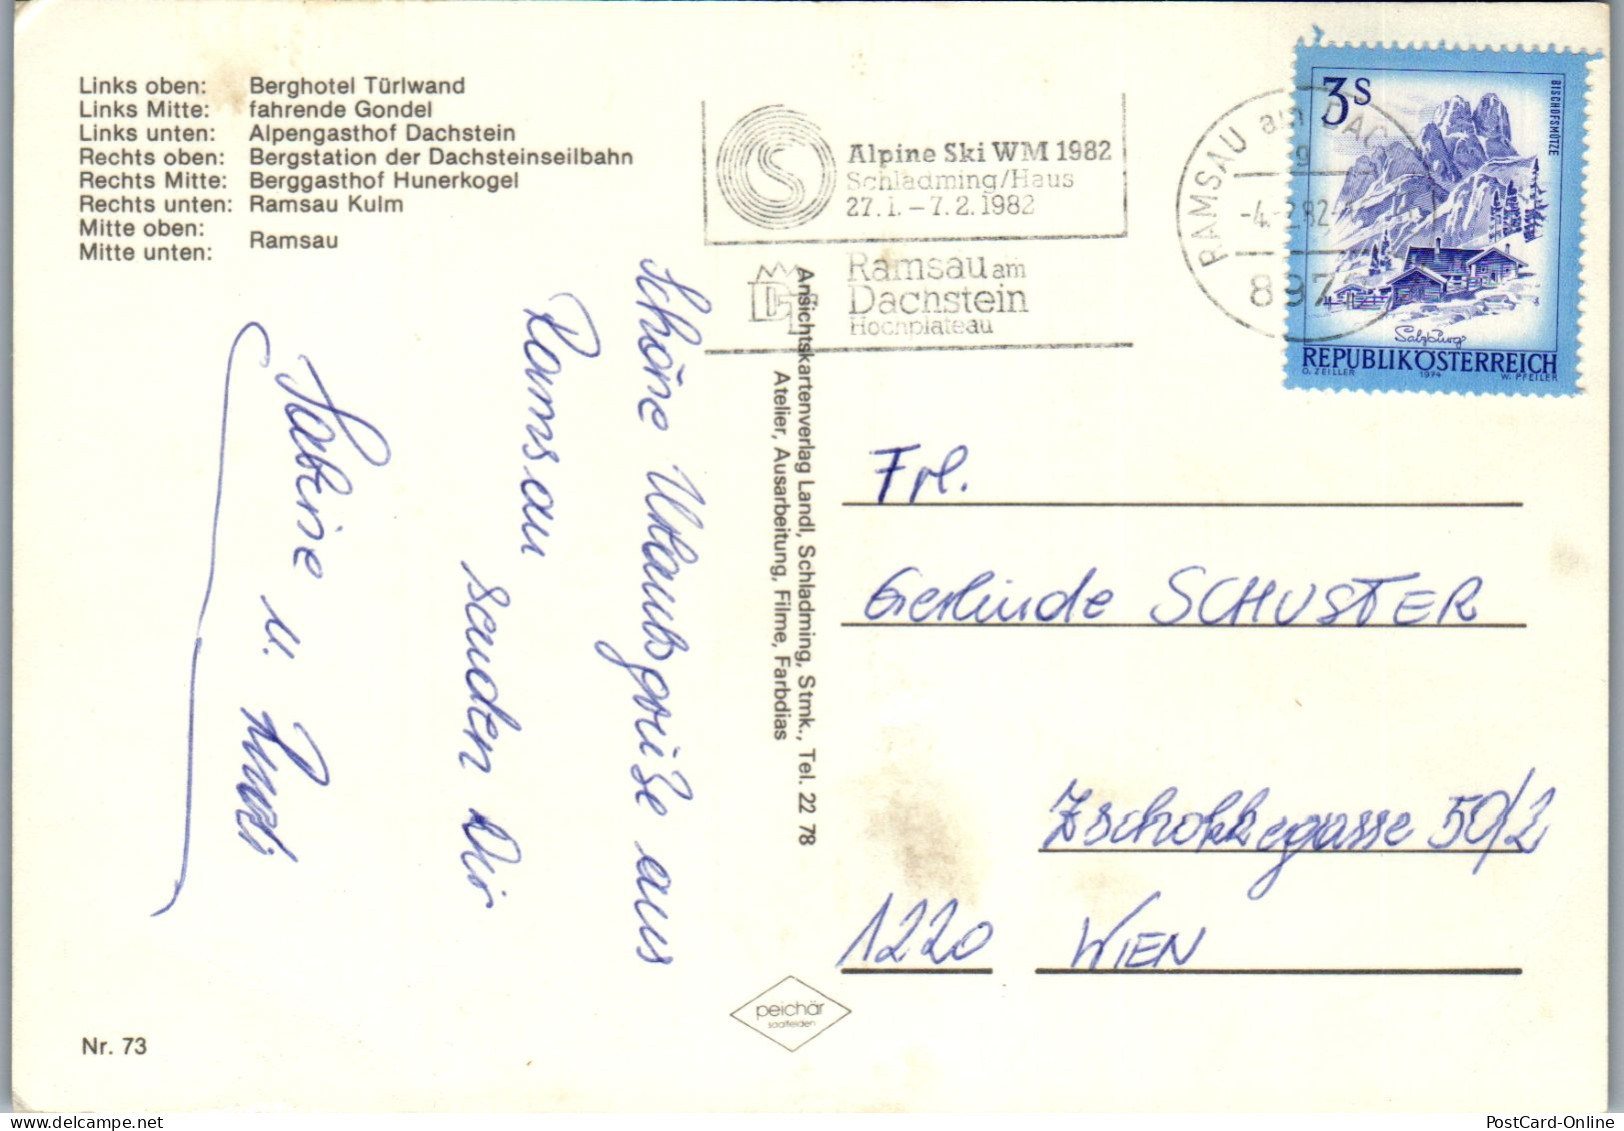 Links oben: Berghotel Türlwand
Links Mitte: fahrende Gondel
Links unten: Alpengasthof Dachstein
Rechts oben: Bergstation der Dachsteinseilbahn
Rechts Mitte: Berggasthof Hunerkogel
Rechts unten: Ramsau Kulm
Mitte oben:
Mitte unten: Ramsau
Alpine Ski WM 1982
Schladming/Haus
27.1.–7.2.1982
Ramsau am
Dachstein
Hochplateau
RAMSAU am DAC
-4.-2.82-
897
3S
BISCHOFSMÜTZE
Salzburg
REPUBLIK ÖSTERREICH
O. ZEILLER 1974 W. PFEILER
Schöne Urlaubsgrüße aus
Ramsau
senden Dir
Sabine u.
Ansichtskartenverlag Landl, Schladming, Stmk., Tel. 22 78
Atelier, Ausarbeitung, Filme, Farbdias
Frl.
Gerlinde SCHUSTER
Zschokkegasse 50/2
1220 WIEN
peichär
saalfelden
Nr. 73
PostCard-Online
delcampe.net